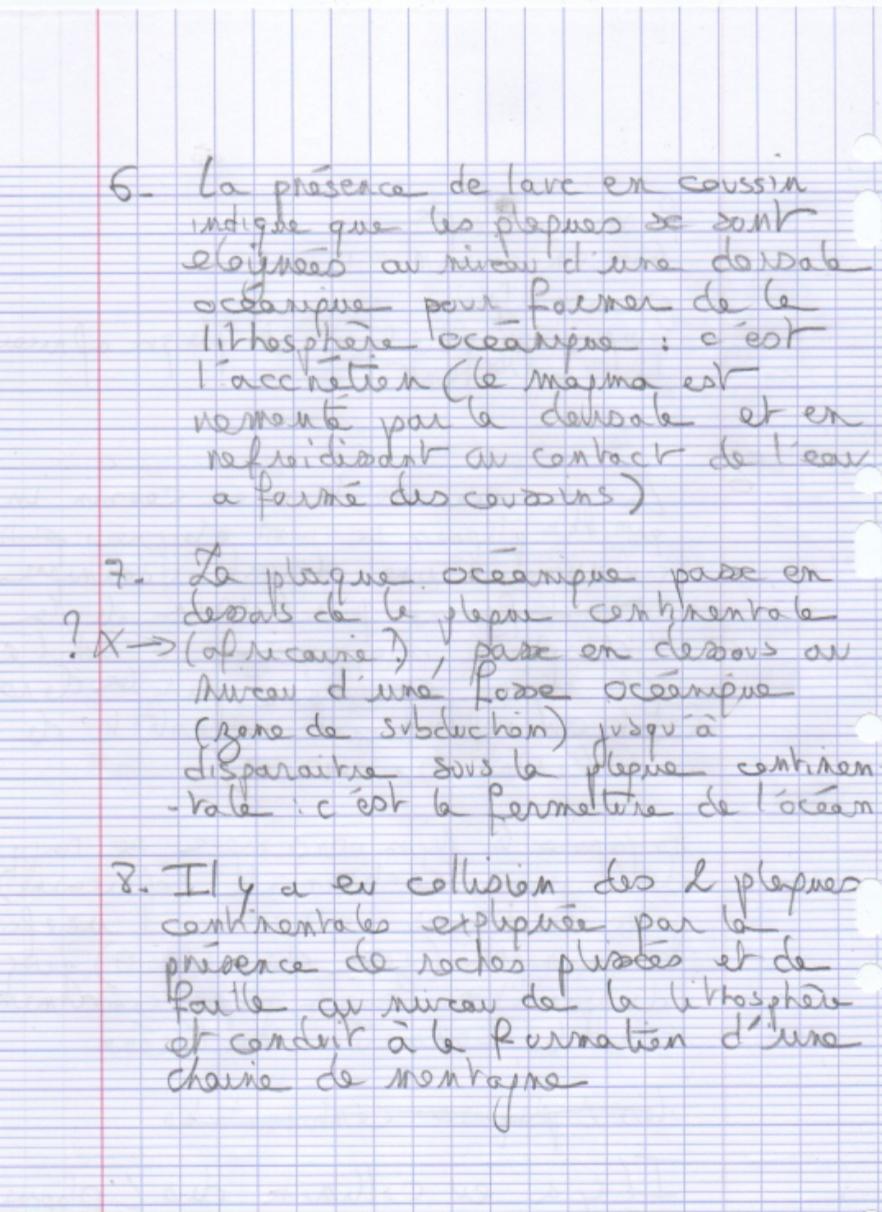 6- La présence de lave en coussin
indique que les plaques se sont
eloignées au niveau d'une dorsale
océanique pour former de la
lithosphère océanique : c'est
l'accrétion (le magma est
remonté par la dorsale et en
refroidissant au contact de l'eau
a formé des coussins)
7- La plaque océanique passe en
dessous de la plaque continentale
? X → (africaine?), passe en dessous au
niveau d'une fosse océanique
(zone de subduction) jusqu'à
disparaitre sous la plaque continen
-tale : c'est la fermeture de l'océan
8- Il y a eu collision des 2 plaques
continentales expliquée par la
présence de roches plissées et de
faille au niveau de la lithosphère
et conduit à la formation d'une
chaine de montagne